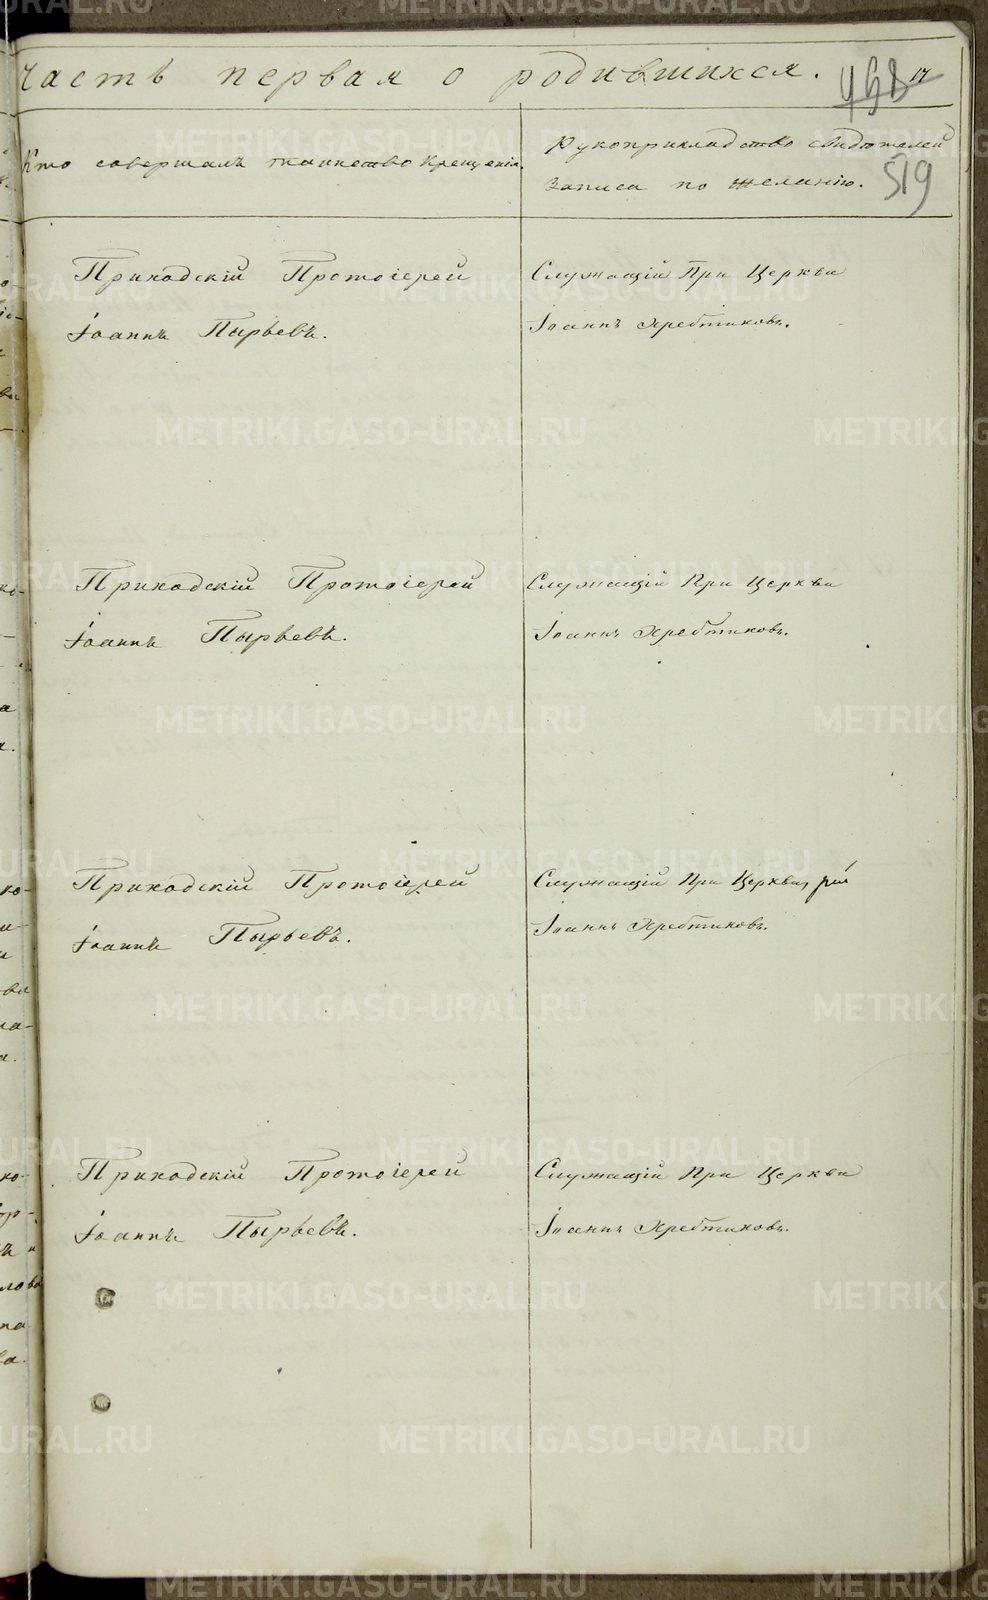 Часть первая о родившихся.
17
519
Кто совершалъ таинство крещенія.
Рукоприкладство свидѣтелей
записи по желанію.
Приходскій Протоіерей
Іоаннъ Пырьевъ.
Служащій При Церкви
Іоаннъ Хребтиковъ.
Приходскій Протоіерей
Іоаннъ Пырьевъ.
Служащій При Церкви
Іоаннъ Хребтиковъ.
Приходскій Протоіерей
Іоаннъ Пырьевъ.
Служащій При Церкви,
Іоаннъ Хребтиковъ.
Приходскій Протоіерей
Іоаннъ Пырьевъ.
Служащій При Церкви
Іоаннъ Хребтиковъ.
METRIKI.GASO-URAL.RU